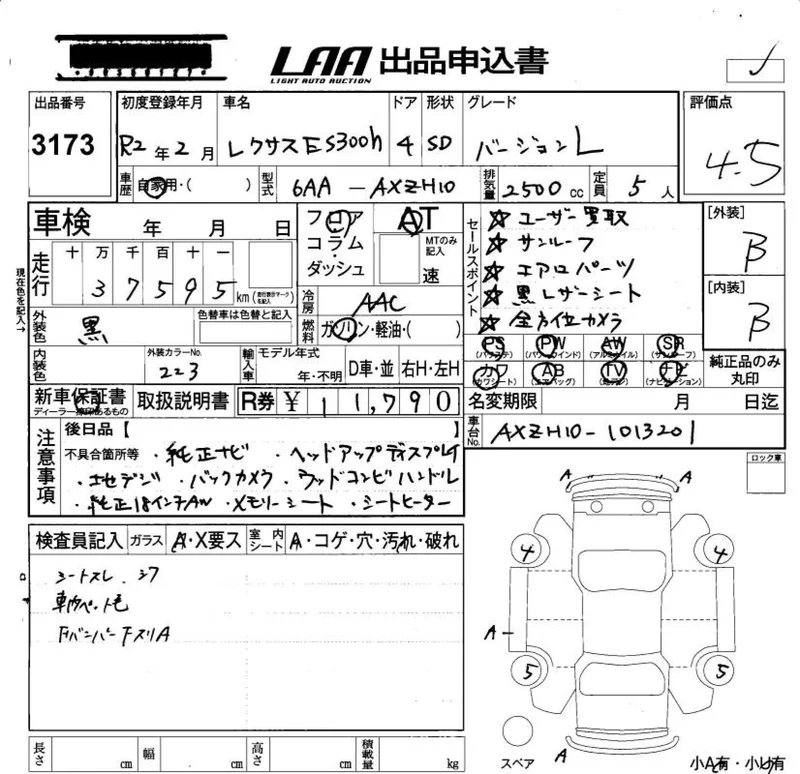 LAA 出品申込書
LIGHT AUTO AUCTION
出品番号 初度登録年月 車名 ドア 形状 グレード 評価点
3173 R2年2月 レクサスES300h 4 SD バージョンL 4.5
車歴 自家用・( ) 型式 6AA-AXZH10 排気量 2500cc 定員 5人
車検 年 月 日 フロア コラム・ダッシュ AT MTのみ記入 速
走行 十 万 千 百 十 一
37595 km
冷房 AAC
外装色 黒 色替車は色替と記入 燃料 ガソリン・軽油・( )
現在色を記入→
内装色 外装カラーNo. 223 輸入車 モデル年式 年・不明 D車・並 右H・左H
新車保証書 取扱説明書 R券 ¥11,790
セールスポイント
☆ユーザー買取
☆サンルーフ
☆エアロパーツ
☆黒レザーシート
☆全方位カメラ
PS PW AW SR
(パワステ) (パワーウインド) (アルミホイル) (サンルーフ)
カワ AB TV ナビ
(カワシート) (エアバッグ) (ナビゲーション)
純正品のみ丸印
名変期限 月 日迄
車台No. AXZH10-1013201
[外装] B
[内装] B
注意事項
後日品【 】
不具合箇所等 ・純正ナビ ・ヘッドアップディスプレイ
・地デジ ・バックカメラ ・ウッドコンビハンドル
・純正18インチAW ・メモリーシート ・シートヒーター
ロック車
検査員記入 ガラス A・X要ス 室内シート A・コゲ・穴・汚れ・破れ
シートスレ、シワ
車内ペット毛
FバンパーFスリA
A A
4 4
A
5 5
A
スペア
小A有・小U有
長さ cm 幅 cm 高さ cm 積載量 kg